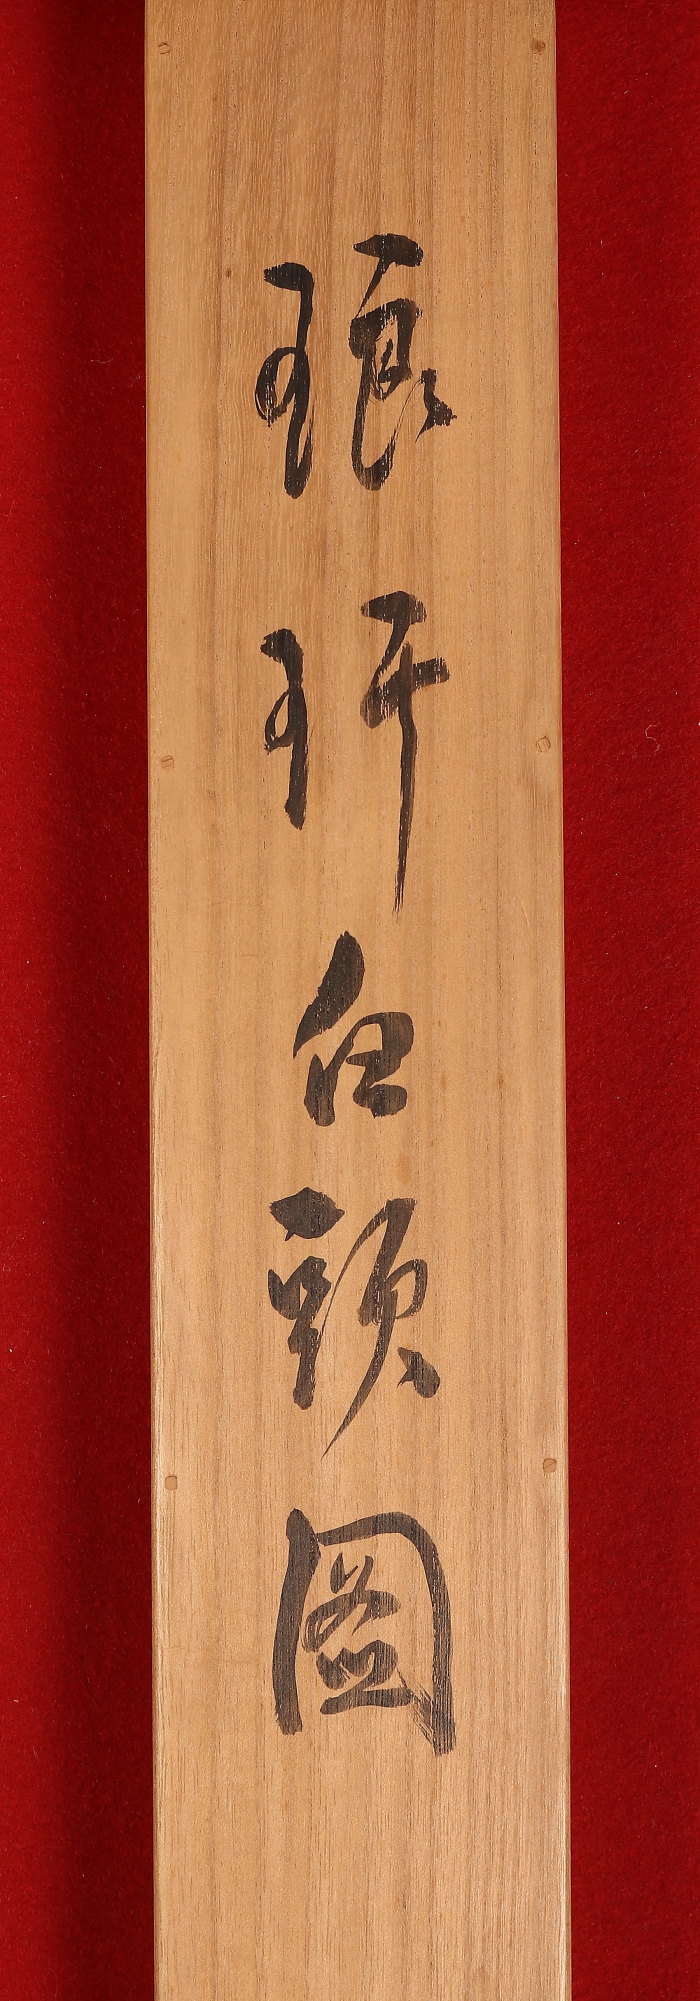 琅玕白頭圖